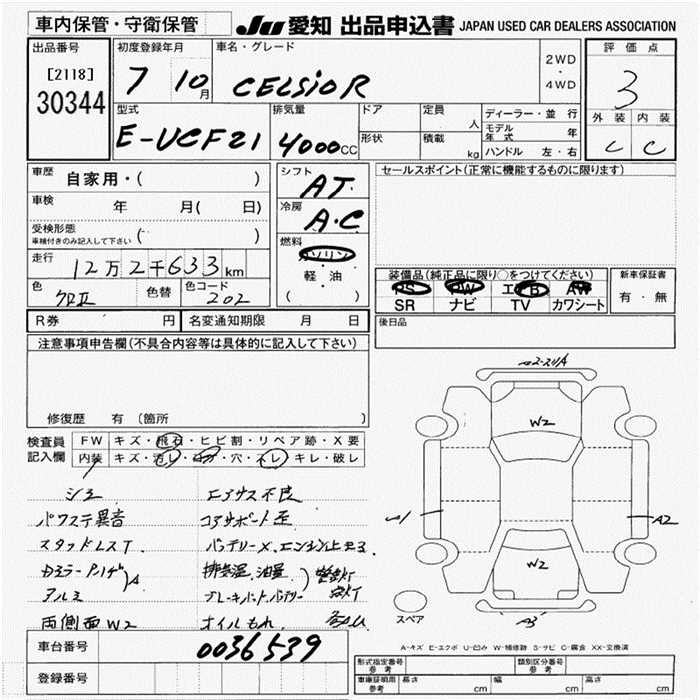 車内保管・守衛保管
JU 愛知 出品申込書 JAPAN USED CAR DEALERS ASSOCIATION
出品番号
[2118]
30344
初度登録年月
7 10月
車名・グレード
CELSIOR
2WD
・
4WD
評価点
3
外装 内装
C C
型式
E-UCF21
排気量
4000cc
ドア
形状
定員
人
積載
kg
ディーラー・並行
モデル年式 年
ハンドル 左・右
車歴 自家用・( )
車検 年 月( 日)
受検形態
車検付きのみ記入して下さい ( )
走行 12万2千633km
色 クロⅡ 色替 色コード 202
シフト
AT
冷房
A・C
燃料
ガソリン
軽・油
( )
セールスポイント(正常に機能するものに限ります)
装備品(純正品に限り○をつけてください)
PS PW エアB AW
SR ナビ TV カワシート
新車保証書
有・無
R券 円 名変通知期限 月 日
後日品
注意事項申告欄(不具合内容等は具体的に記入して下さい)
修復歴 有 (箇所 )
検査員記入欄
FW キズ・飛石・ヒビ割・リペア跡・X要
内装 キズ・汚レ・コゲ・穴・スレ・キレ・破レ
シミ エアサス不良
パワステ異音 コアサポート歪
スタッドレスT. バッテリーX.
カラーP.ハゲ 排気温.油量
アルミ A ブレーキパット.バッテリー 警告灯
両側面W2 オイルもれ
W2
W2
A2
A3
スペア
A-キズ E-エクボ U-凹み W-補修跡 S-サビ C-腐食 XX-交換済
車台番号 0036539
登録番号
形式指定番号 参考
類別区分番号 参考
車庫証明用 参考 長さ cm 幅 cm 高さ cm